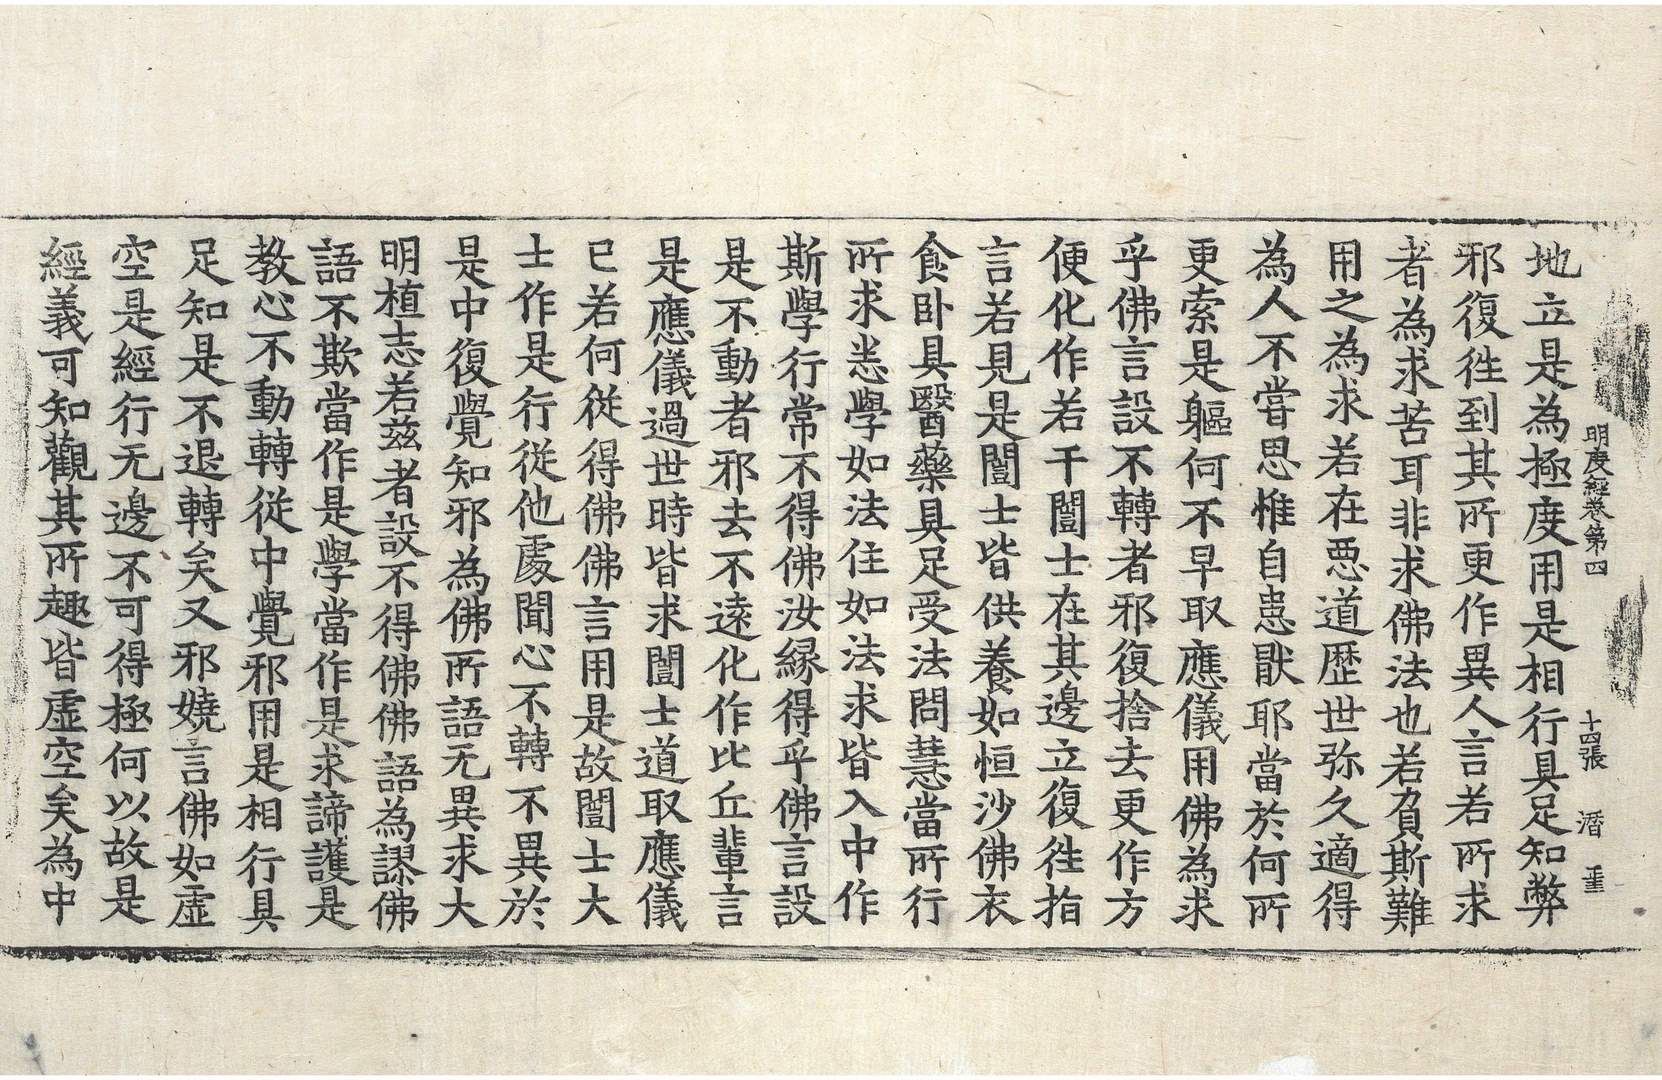 明度經卷第四　十四張　潛　重
地立是爲極度用是相行具足知弊
邪復徃到其所更作異人言若所求
者爲求苦耳非求佛法也若負斯難
用之爲求若在惡道歷世弥久適得
爲人不嘗思惟自患厭耶當於何所
更索是軀何不早取應儀用佛爲求
乎佛言設不轉者邪復捨去更作方
便化作若干闓士在其邊立復徃指
言若見是闓士皆供養如恒沙佛衣
食卧具醫藥具足受法問慧當所行
所求恚學如法住如法求皆入中作
斯學行常不得佛汝緣得乎佛言設
是不動者邪去不遠化作比丘輩言
是應儀過世時皆求闓士道取應儀
已若何從得佛佛言用是故闓士大
士作是行從他處聞心不轉不異於
是中復覺知邪爲佛所語无異求大
明植志若茲者設不得佛佛語爲謬佛
語不欺當作是學當作是求諦護是
教心不動轉從中覺邪用是相行具
足知是不退轉矣又邪嬈言佛如虛
空是經行无邊不可得極何以故是
經義可知觀其所趣皆虛空矣爲中